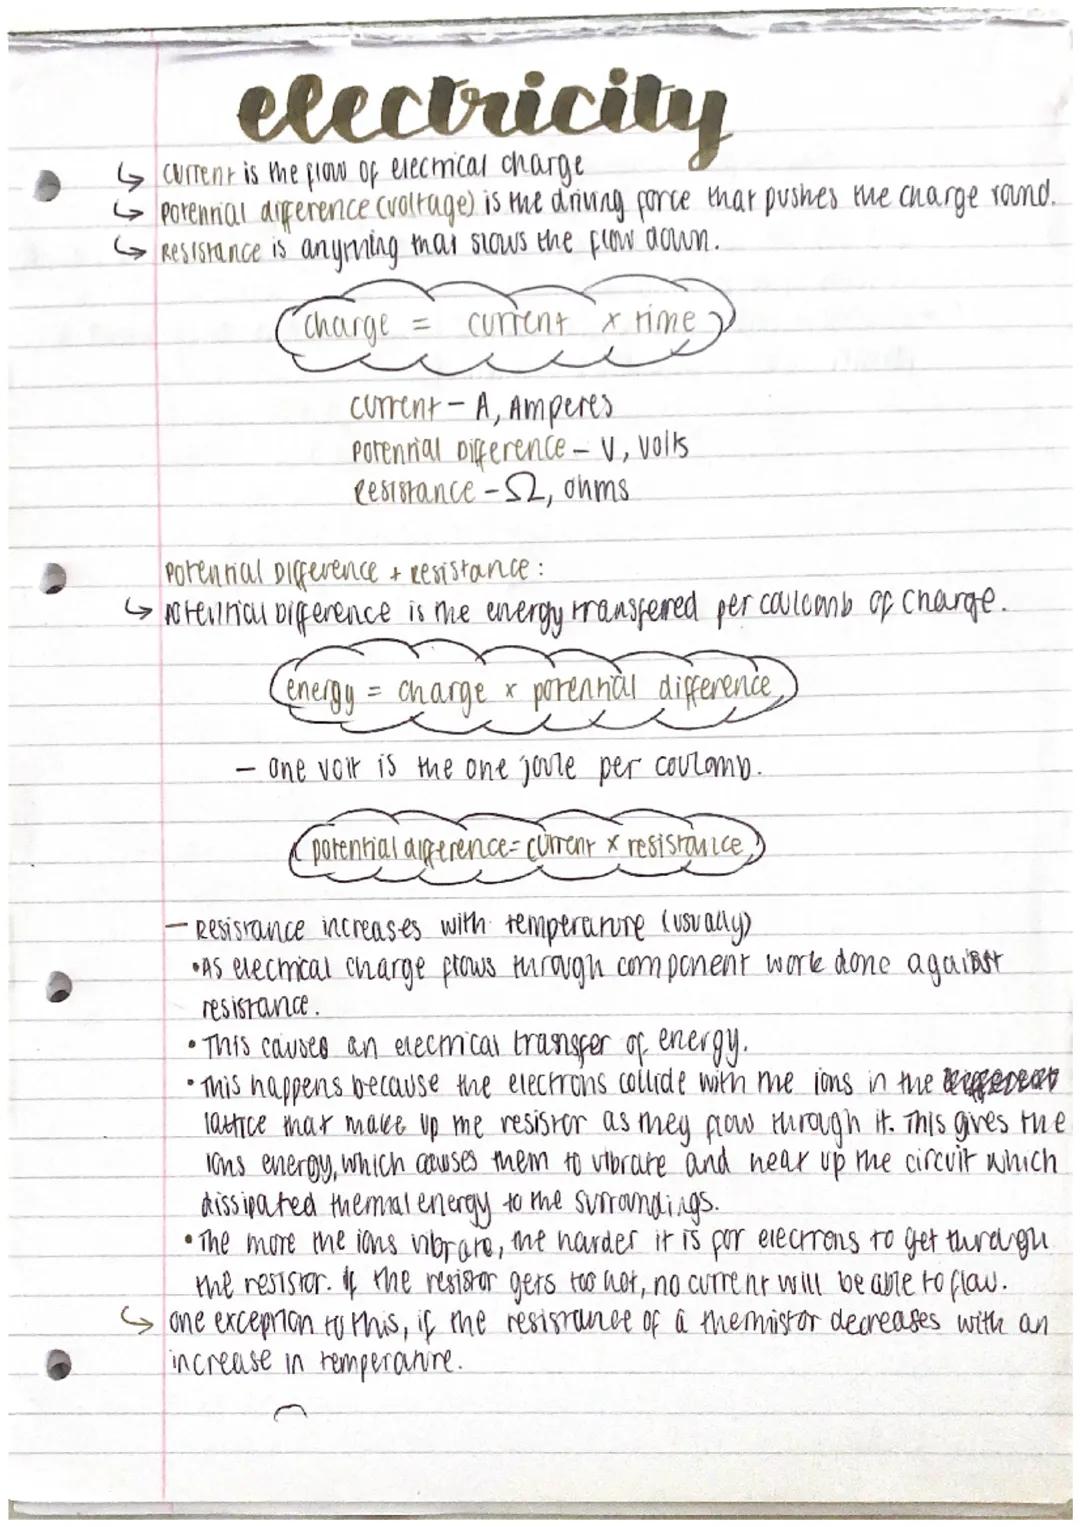 electricity
↳ current is the flow of electrical charge
↳ potential difference (voltage) is the driving force that pushes the charge round.
↳ Resistance is anything that slows the flow down.
charge = current × time
current – A, Amperes
Potential Difference – V, Volts
Resistance – Ω, ohms
Potential Difference + resistance:
↳ Potential Difference is the energy transferred per coulomb of charge.
energy = charge × potential difference
– one volt is the one joule per coulomb.
potential difference = current × resistance
– Resistance increases with temperature (usually)
• As electrical charge flows through component work done against
resistance.
• This causes an electrical transfer of energy.
• This happens because the electrons collide with the ions in the
lattice that make up the resistor as they flow through it. This gives the
ions energy, which causes them to vibrate and heat up the circuit which
dissipated thermal energy to the surroundings.
• The more the ions vibrate, the harder it is for electrons to get through
the resistor. if the resistor gets too hot, no current will be able to flow.
↳ one exception to this, if the resistance of a thermistor decreases with an
increase in temperature.